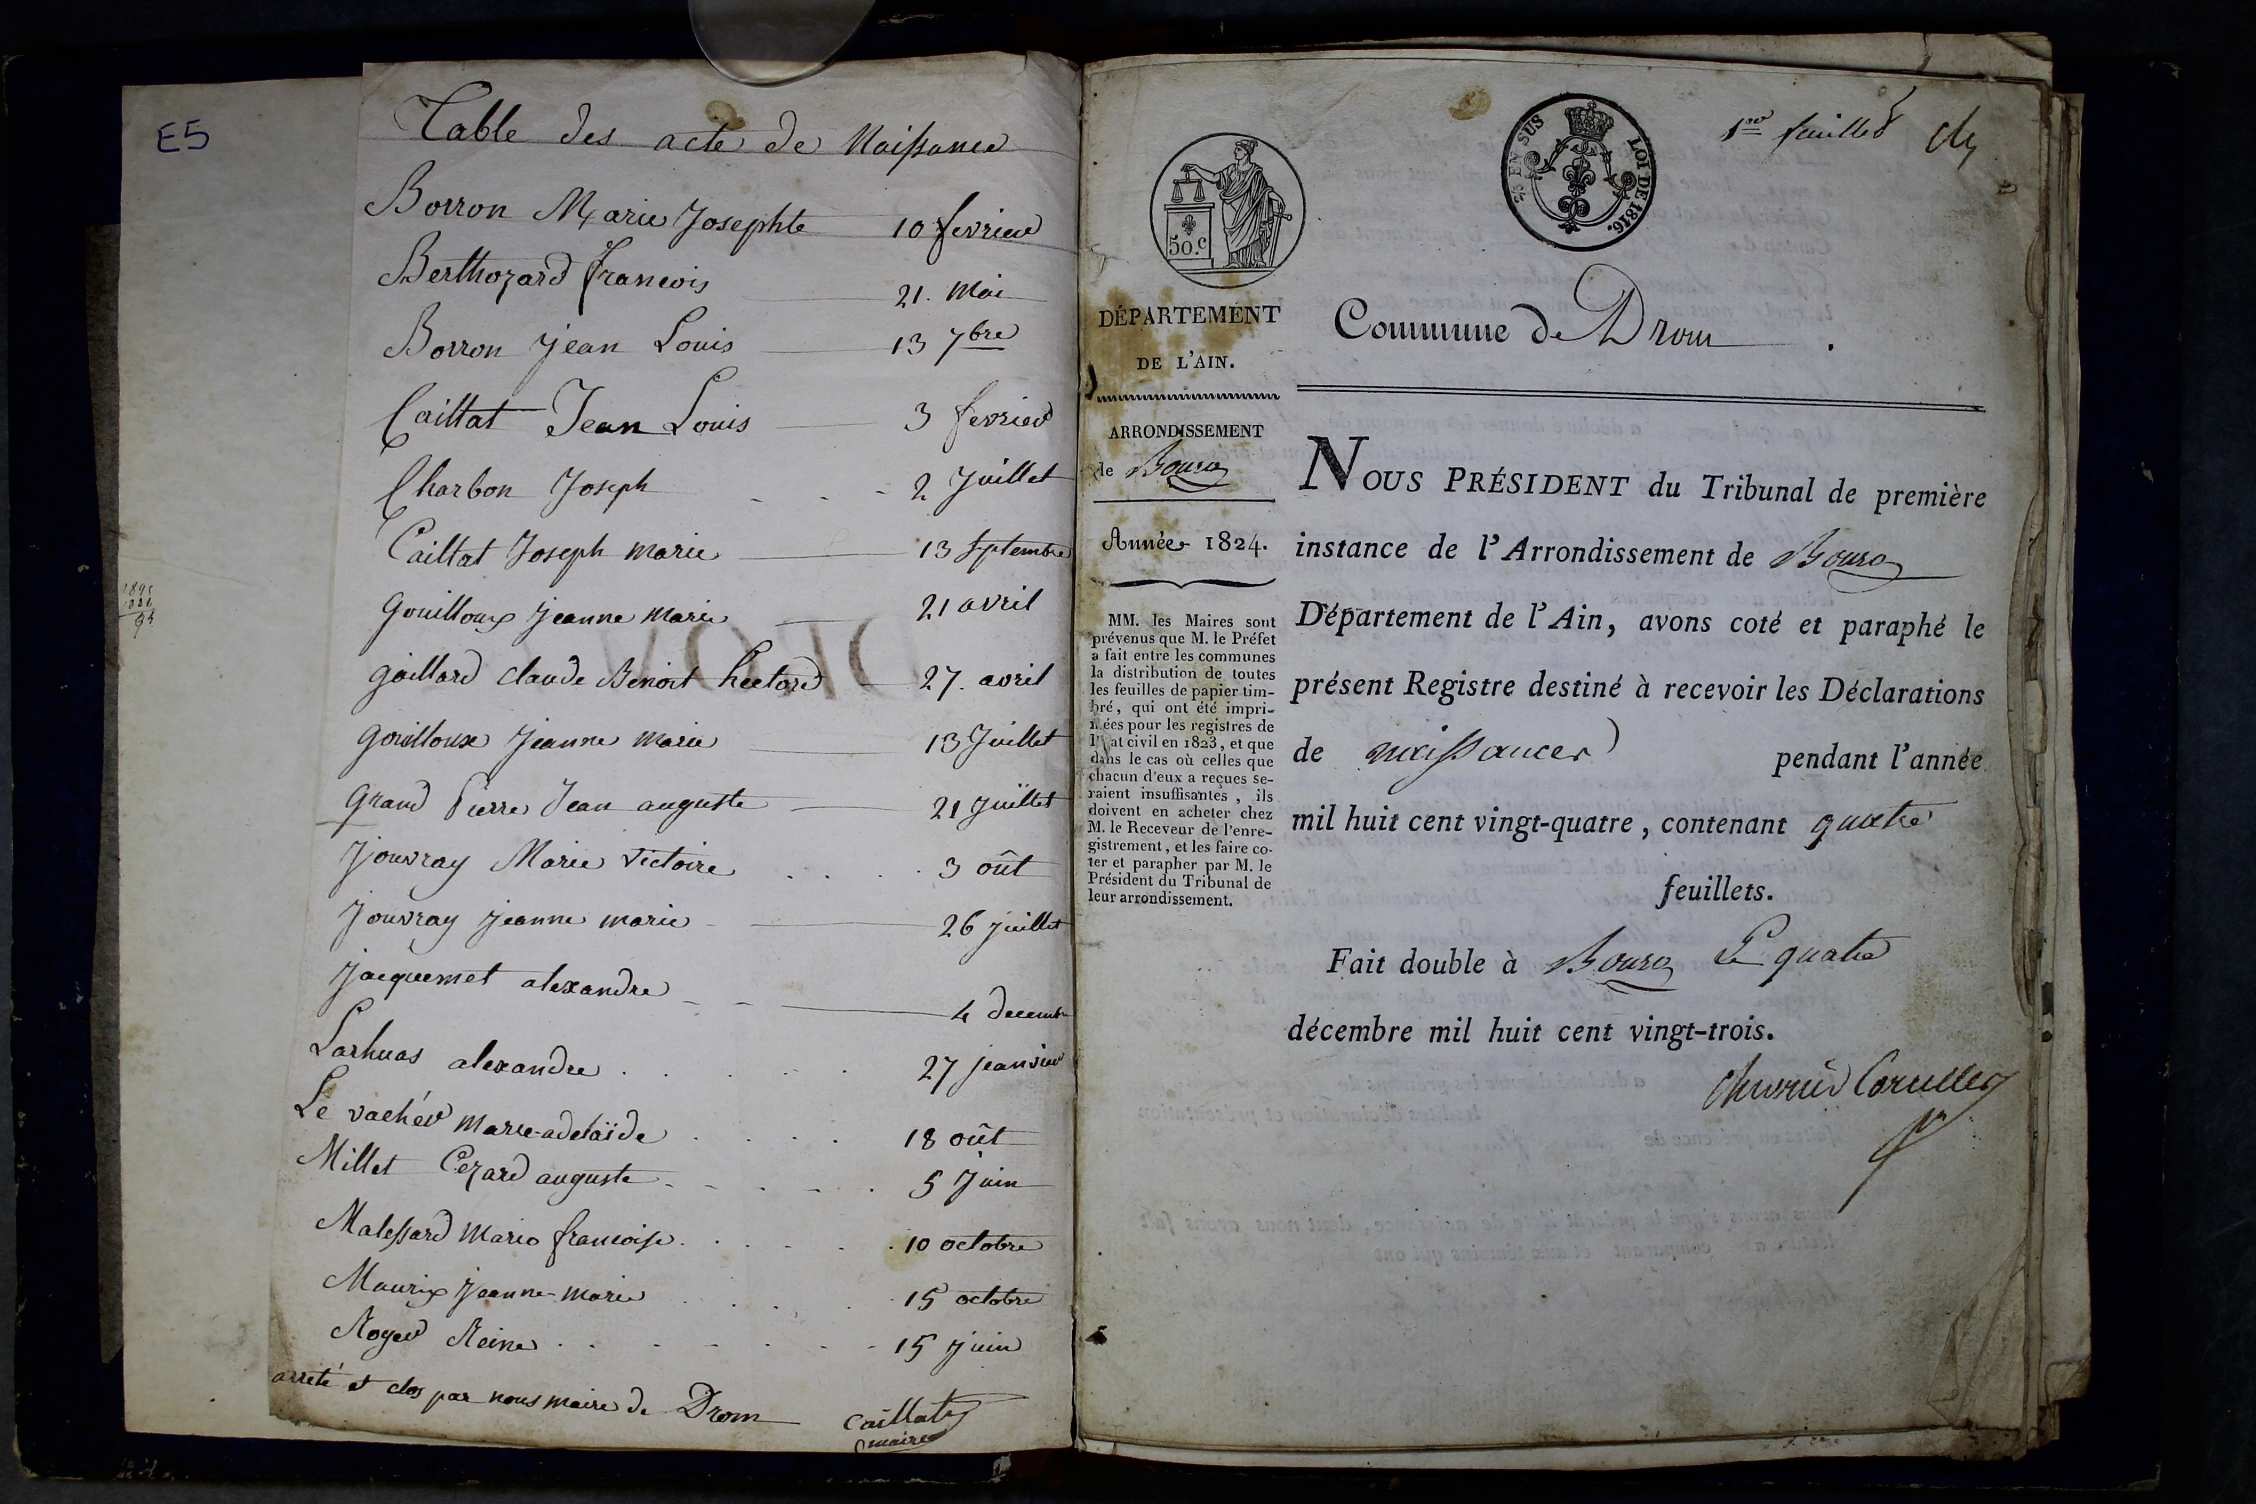 E5
Table des acte de Naissance
Borron Marie Josephte 10 fevrier
Berthozard francois 21. Mai
Borron jean Louis 13 7bre
Caillat Jean Louis 3 fevrier
Charbon Joseph 2 Juillet
Caillat Joseph marie 13 septembre
gouilloux jeanne marie 21 avril
gaillard claude Benoit hector 27. avril
gouilloux jeanne marie 13 Juillet
grand Pierre Jean auguste 21 Juillet
Jouvray Marie victoire 3 oût
Jouvray jeanne marie 26 juillet
jacquemet alexandre 4 decembre
alexandre 27 jeanvier
Le vachér marie-adelaïde 18 oût
Millet Cezard auguste 5 Juin
Malessard marie francoise 10 octobre
Maurix jeanne-marie 15 octobre
Royer Reine 15 juin
arreté et clos par nous maire de Drom Caillat
maire
50.c
5/5 EN SUS LOI DE 1816.
1er feuillet
DÉPARTEMENT
DE L'AIN.
Commune de Drom.
ARRONDISSEMENT
de Bourg
Année 1824.
MM. les Maires sont
prévenus que M. le Préfet
a fait entre les communes
la distribution de toutes
les feuilles de papier tim-
bré, qui ont été impri-
mées pour les registres de
l'état civil en 1823, et que
dans le cas où celles que
chacun d'eux a reçues se-
raient insuffisantes, ils
doivent en acheter chez
M. le Receveur de l'enre-
gistrement, et les faire co-
ter et parapher par M. le
Président du Tribunal de
leur arrondissement.
NOUS PRÉSIDENT du Tribunal de première
instance de l'Arrondissement de Bourg
Département de l'Ain, avons coté et paraphé le
présent Registre destiné à recevoir les Déclarations
de naissances pendant l'année
mil huit cent vingt-quatre, contenant quatre
feuillets.
Fait double à Bourg Le quatre
décembre mil huit cent vingt-trois.